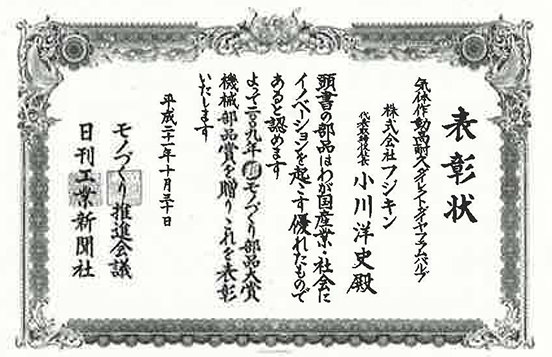 表彰状
気体作動高耐久ダイレクトダイヤフラムバルブ
株式会社フジキン
代表取締役社長 小川洋史殿
頭書の部品はわが国産業・社会に
イノベーションを起こす優れたもので
あると認めます
よって二〇〇九年モノづくり部品大賞
機械部品賞を贈りこれを表彰
いたします
平成二十一年十月三十日
モノづくり推進会議
日刊工業新聞社